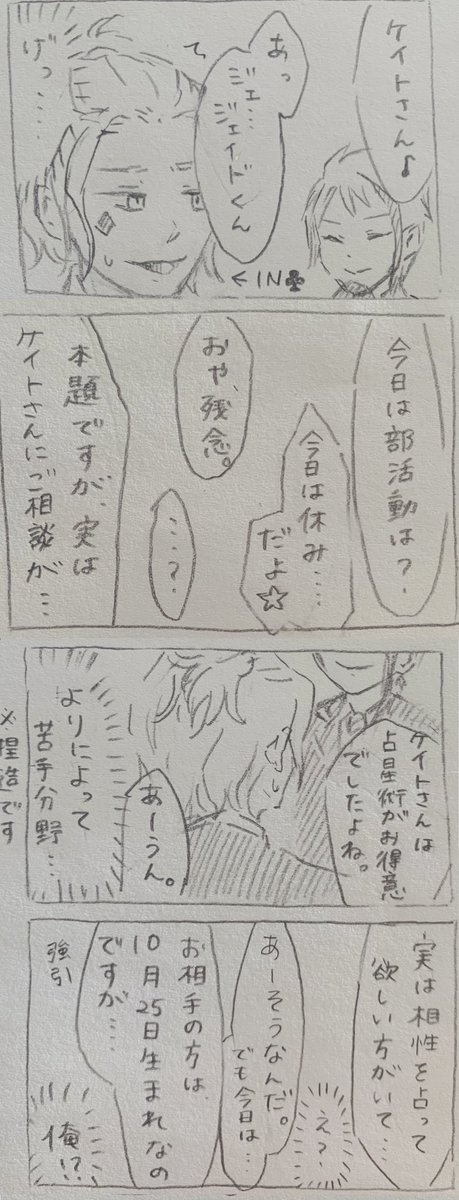 ケイトさん♪
あっ
ジェ…
ジェイドくん
げっ……
←IN♣
今日は部活動は?
今日は休み……
だよ☆
おや、残念。
……?
本題ですが、実は
ケイトさんにご相談が…
ケイトさんは
占星術がお得意
でしたよね。
あーうん。
よりによって
苦手分野…
実は相性を占って
欲しい方がいて…
え?
あーそうなんだ。
でも今日は…
お相手の方は
10月25日生まれなの
ですが……
強引
俺!?